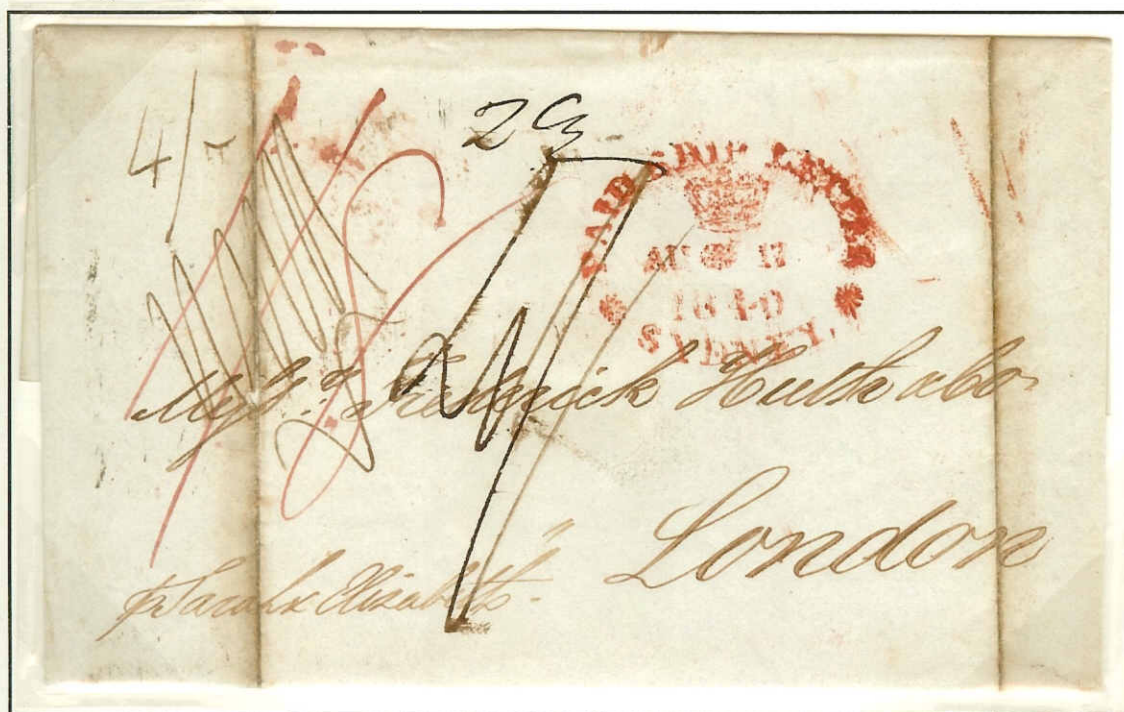 4/-
PAID SHIP LETTER
AU 17
1840
SYDNEY.
Messrs. Frederick Huth & Co.
London
p Sarah & Elizabeth